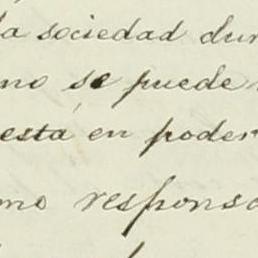 la sociedad dur
no se puede
está en poder
mo responsa